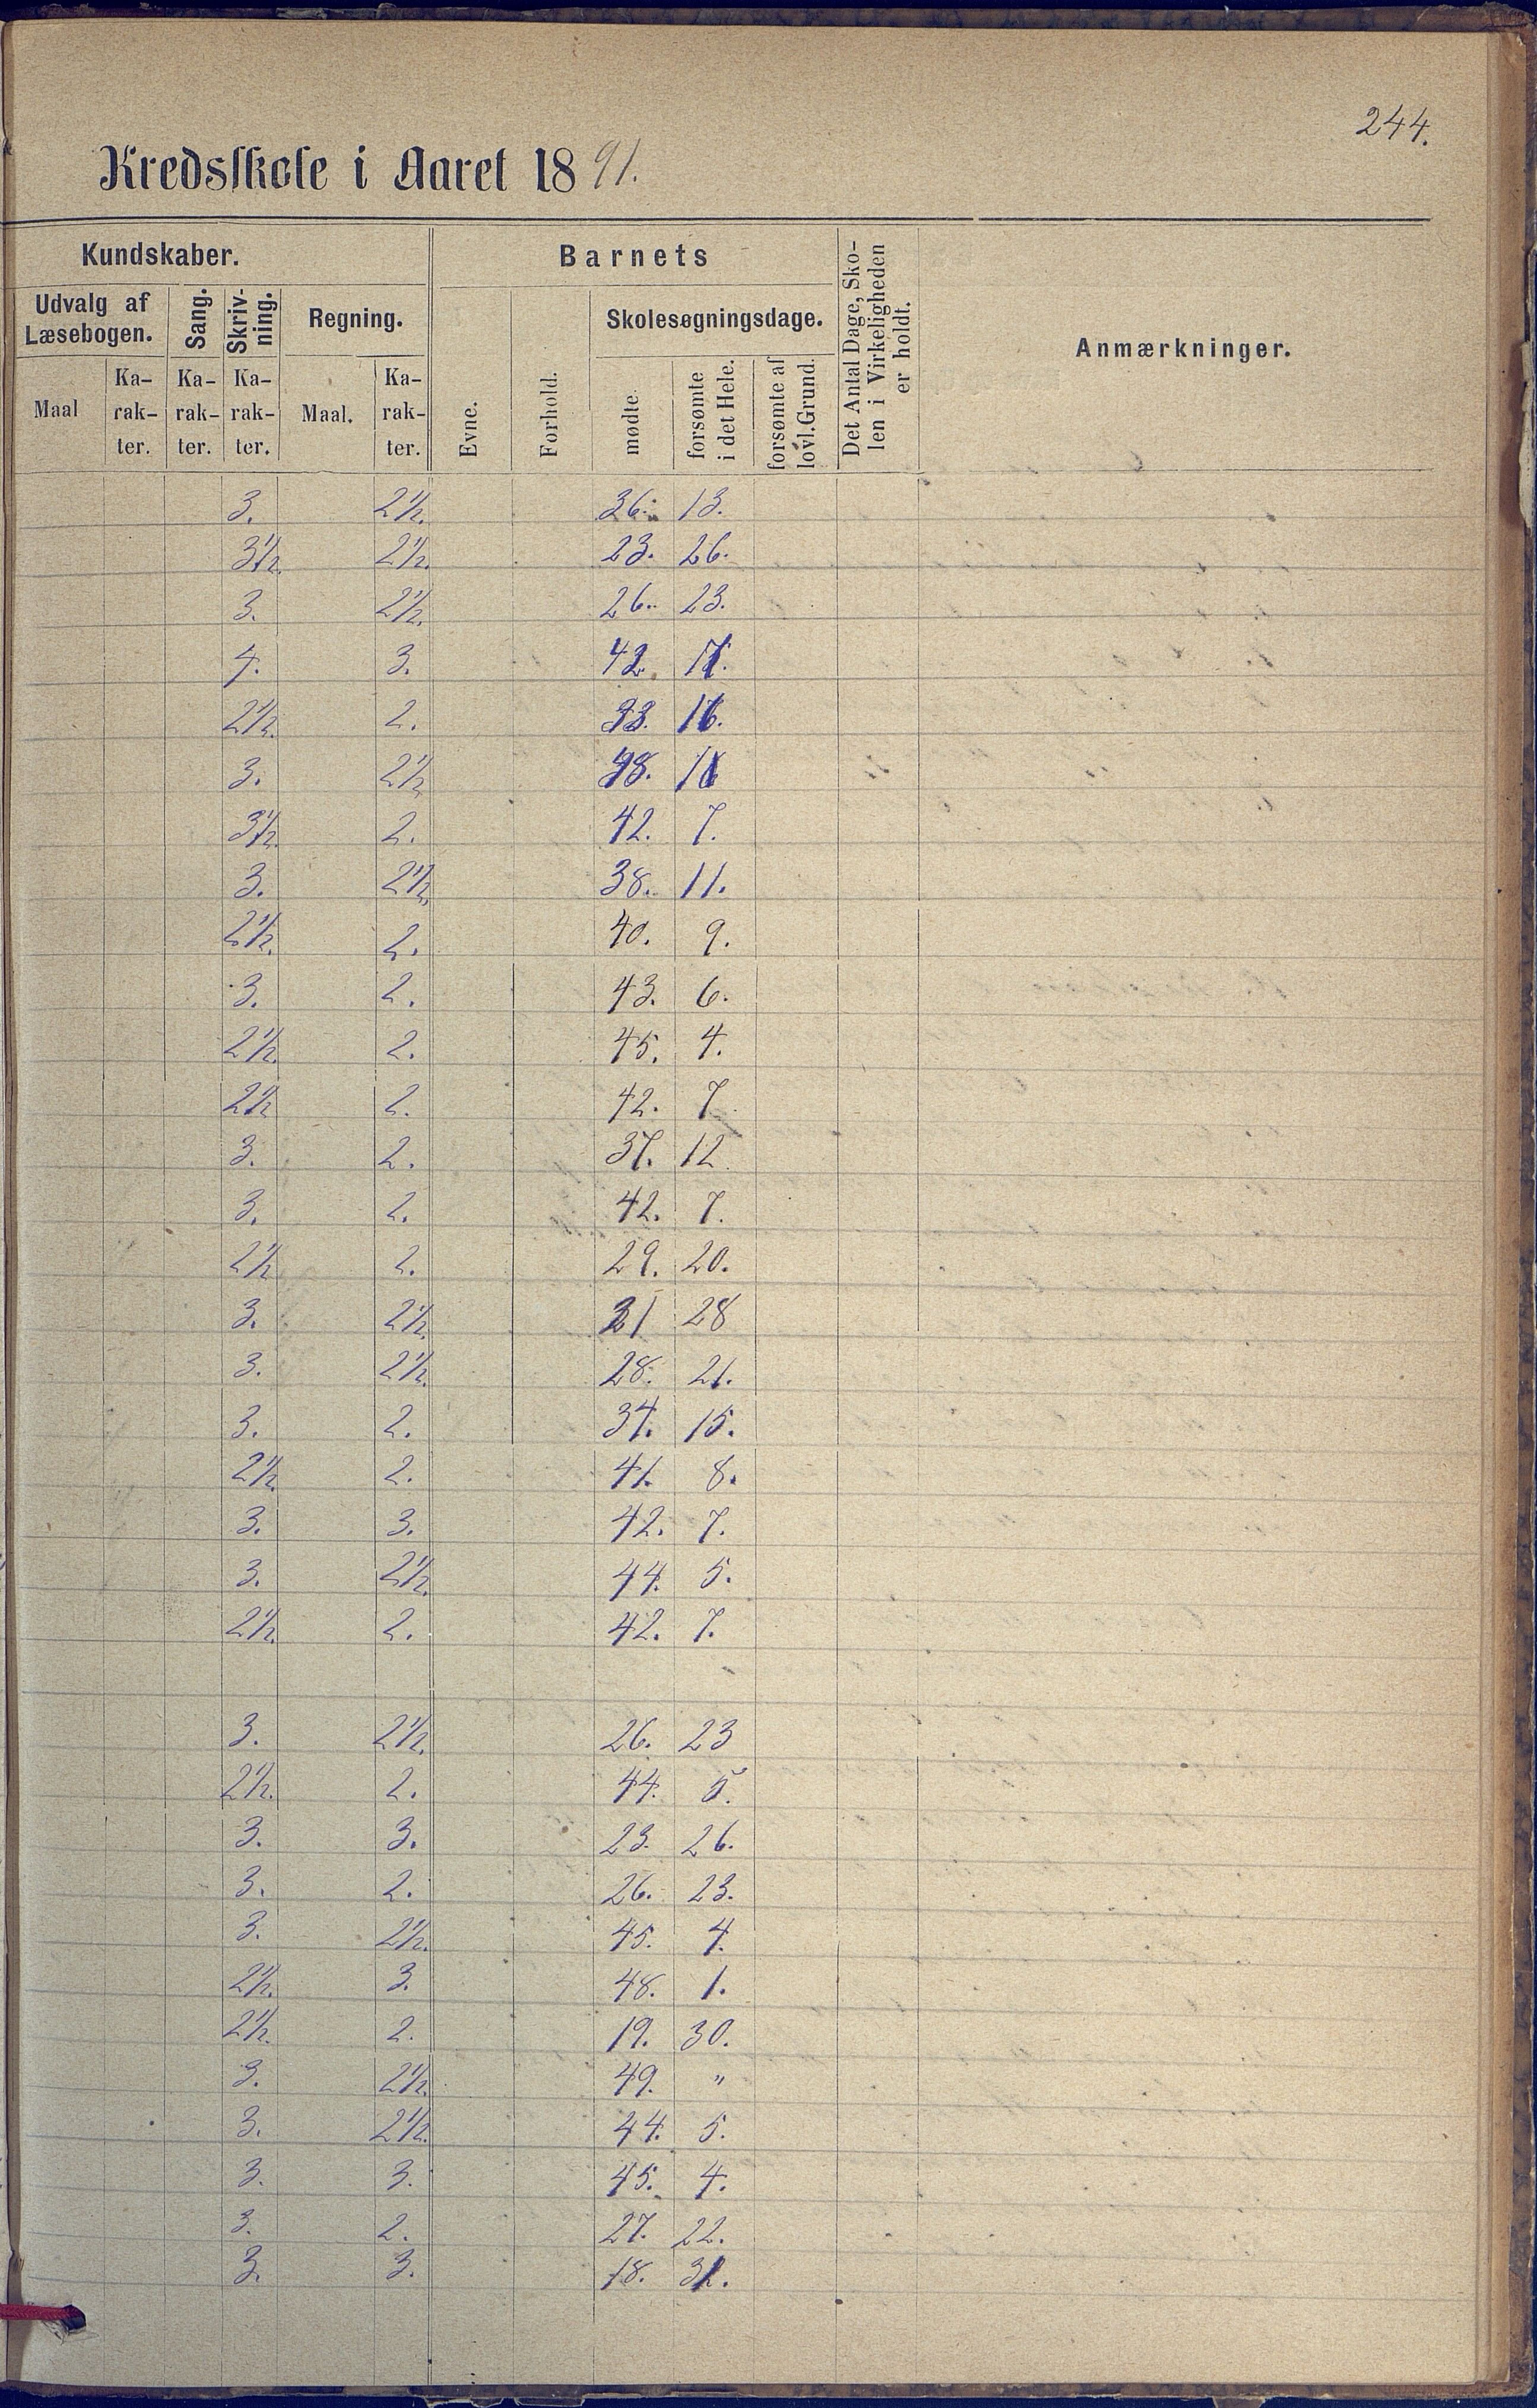 244.
Kredsskole i Aaret 1891.
Kundskaber. Barnets Det Antal Dage, Sko-
len i Virkeligheden
er holdt. Anmærkninger.
Udvalg af
Læsebogen. Sang. Skriv-
ning. Regning. Evne. Forhold. Skolesøgningsdage.
Maal Ka-
rak-
ter. Ka-
rak-
ter. Ka-
rak-
ter. Maal. Ka-
rak-
ter. mødte. forsømte
i det Hele. forsømte af
lovl. Grund.
3. 2½. 36. 13.
3½. 2½. 23. 26.
3. 2½. 26. 23.
4. 3. 42.
2½. 2. 33. 16.
3. 2½ 38.
3½. 2. 42. 7.
3. 2½. 38. 11.
2½. 2. 40. 9.
3. 2. 43. 6.
2½. 2. 45. 4.
2½ 2. 42. 7.
3. 2. 37. 12
3. 2. 42. 7.
2½ 2. 29. 20.
3. 2½. 21 28
3. 2½. 28. 21.
3. 2. 34. 15.
2½ 2. 41. 8.
3. 3. 42. 7.
3. 2½. 44. 5.
2½. 2. 42. 7.
3. 2½. 26. 23
2½. 2. 44. 5.
3. 3. 23. 26.
3. 2. 26. 23.
3. 2½. 45. 4.
2½. 3. 48. 1.
2½. 2. 19. 30.
3. 2½. 49. "
3. 2½. 44. 5.
3. 3. 45. 4.
3. 2. 27. 22.
3. 3. 18. 31.